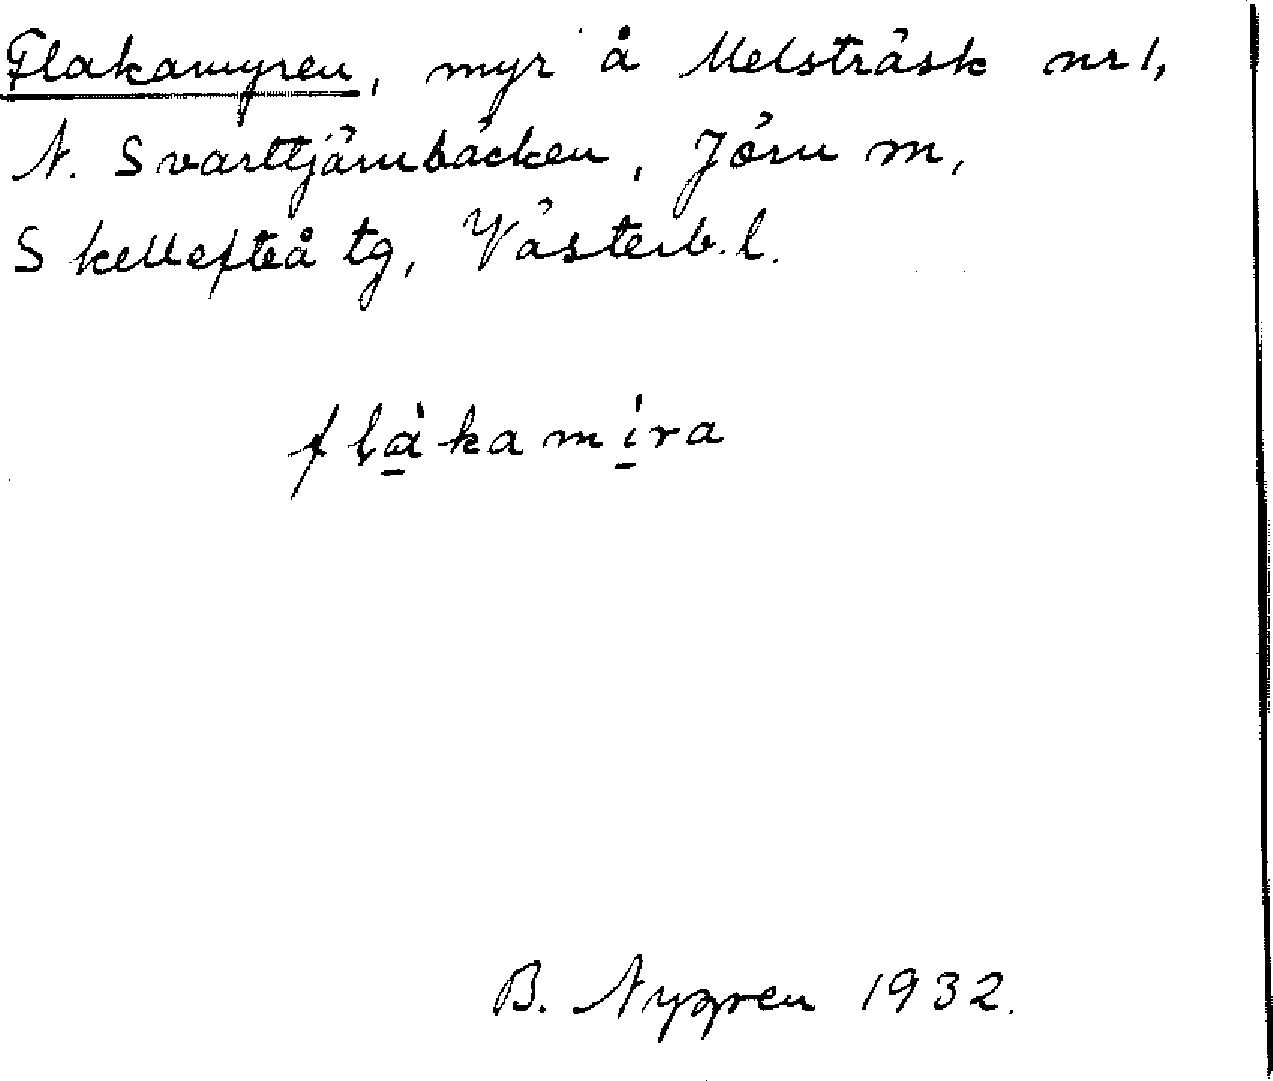 Flakamyren, myr å Melsträsk nr 1,
N. Svarttjärnbäcken, Jörn m,
Skellefteå tg, Västerb. l.
flàkamíra
B. Nygren 1932.